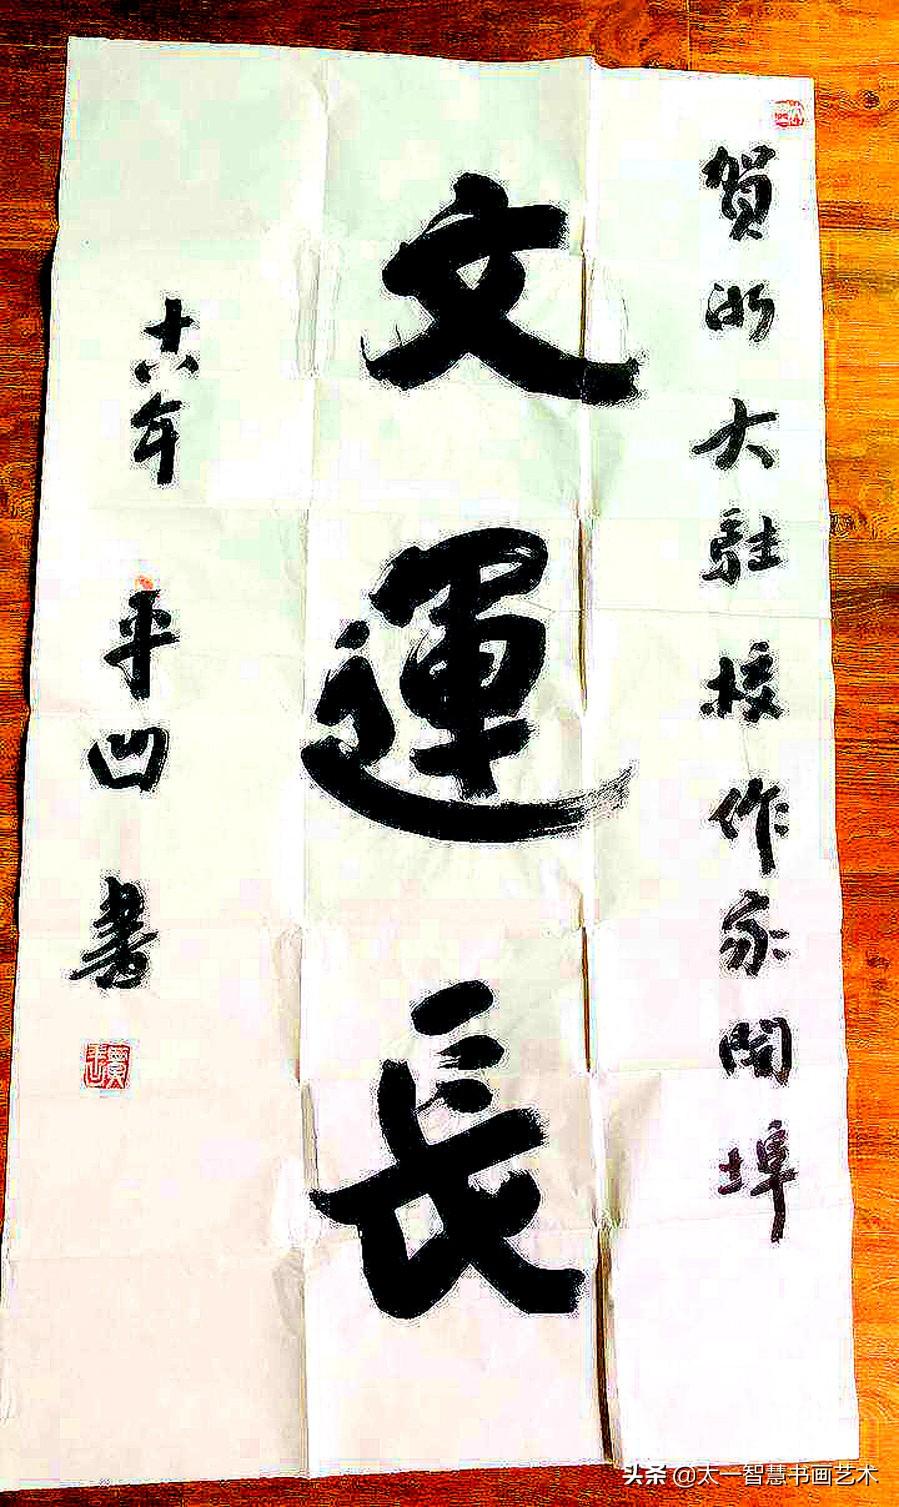 賀浙大駐校作家開埠
文運長
十六年
平凹書
头条 @太一智慧书画艺术